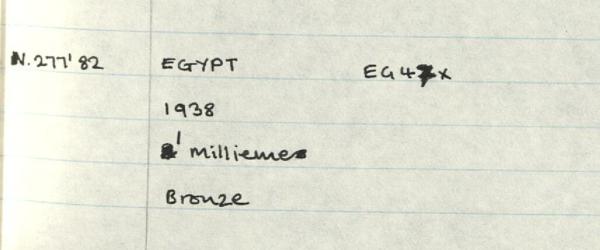 N.277'82 EGYPT EG47x
1938
1 millieme
Bronze